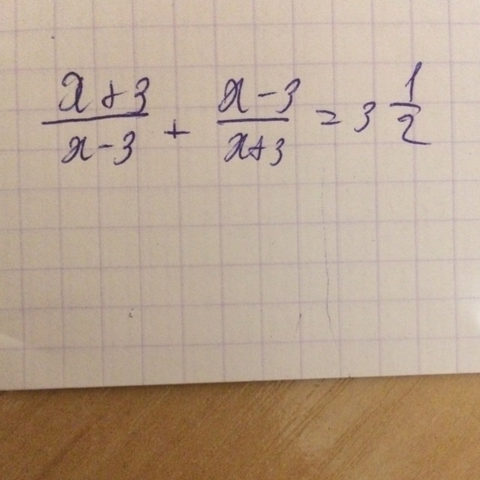 (x+3)/(x-3) + (x-3)/(x+3) = 3 1/2